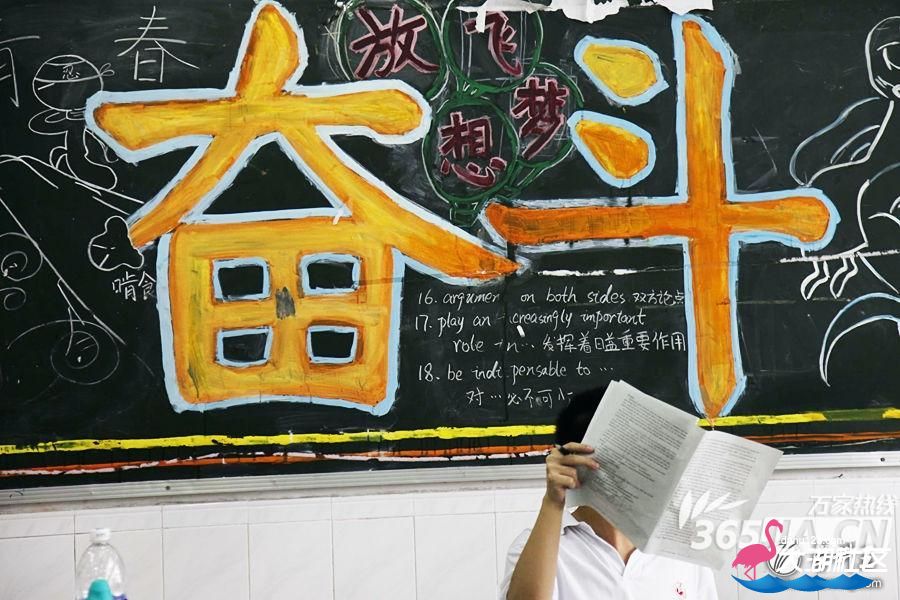 青春
忍
奋斗
放飞
梦想
啃食
16. argumen on both sides 双方论点
17. play an creasingly important
role in... 发挥着日益重要作用
18. be indi pensable to ...
对 ... 必不可少
万家热线
365JIA.CN